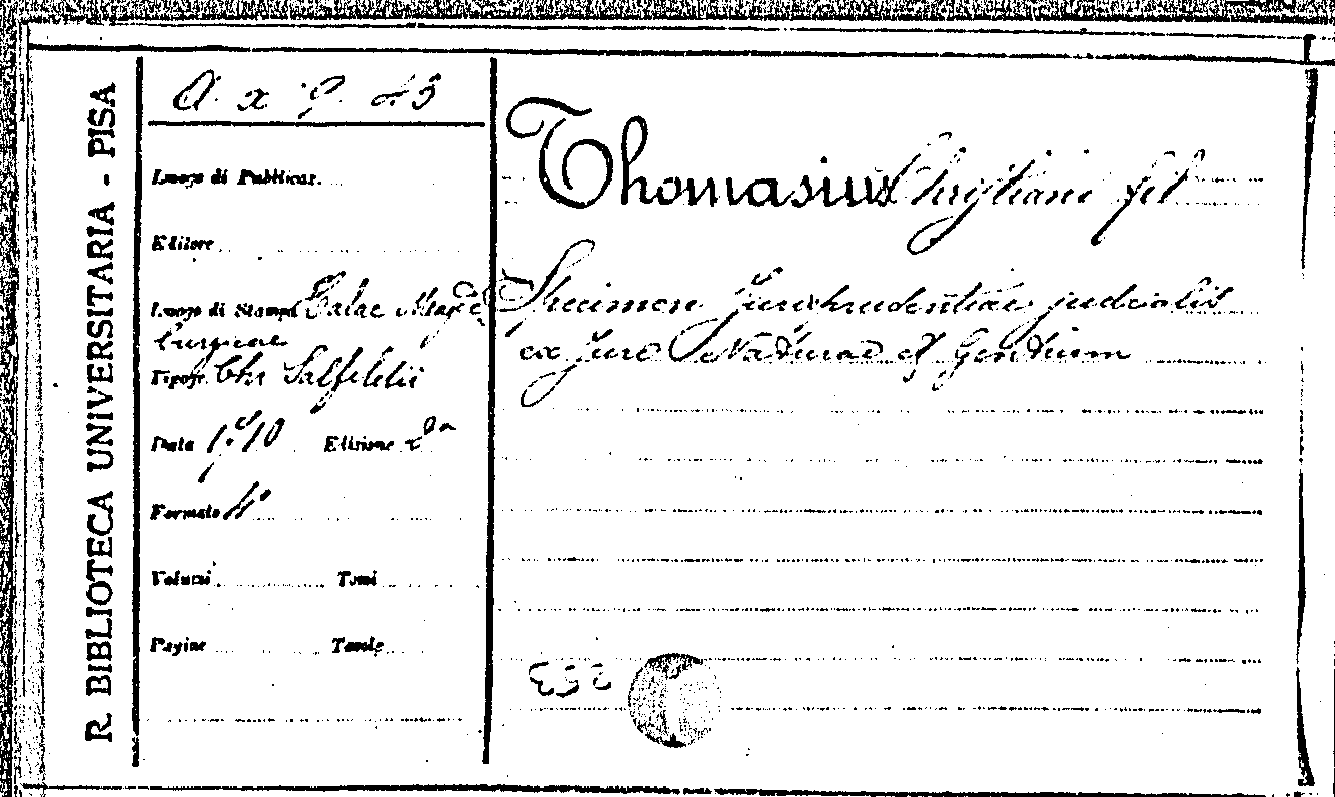 R. BIBLIOTECA UNIVERSITARIA - PISA
A. x 9. 43
Luogo di Pubblicaz.
Editore
Luogo di Stampa Halae Magde
burgicae
Tipogr. Chr Salfeldii
Data 1710 Edizione 2a
Formato 4°
Volumi Tomi
Pagine Tavole
Thomasius Christiani fil
Specimen Jurisprudentiae judicialis
ex Jure Naturae et Gentium
253